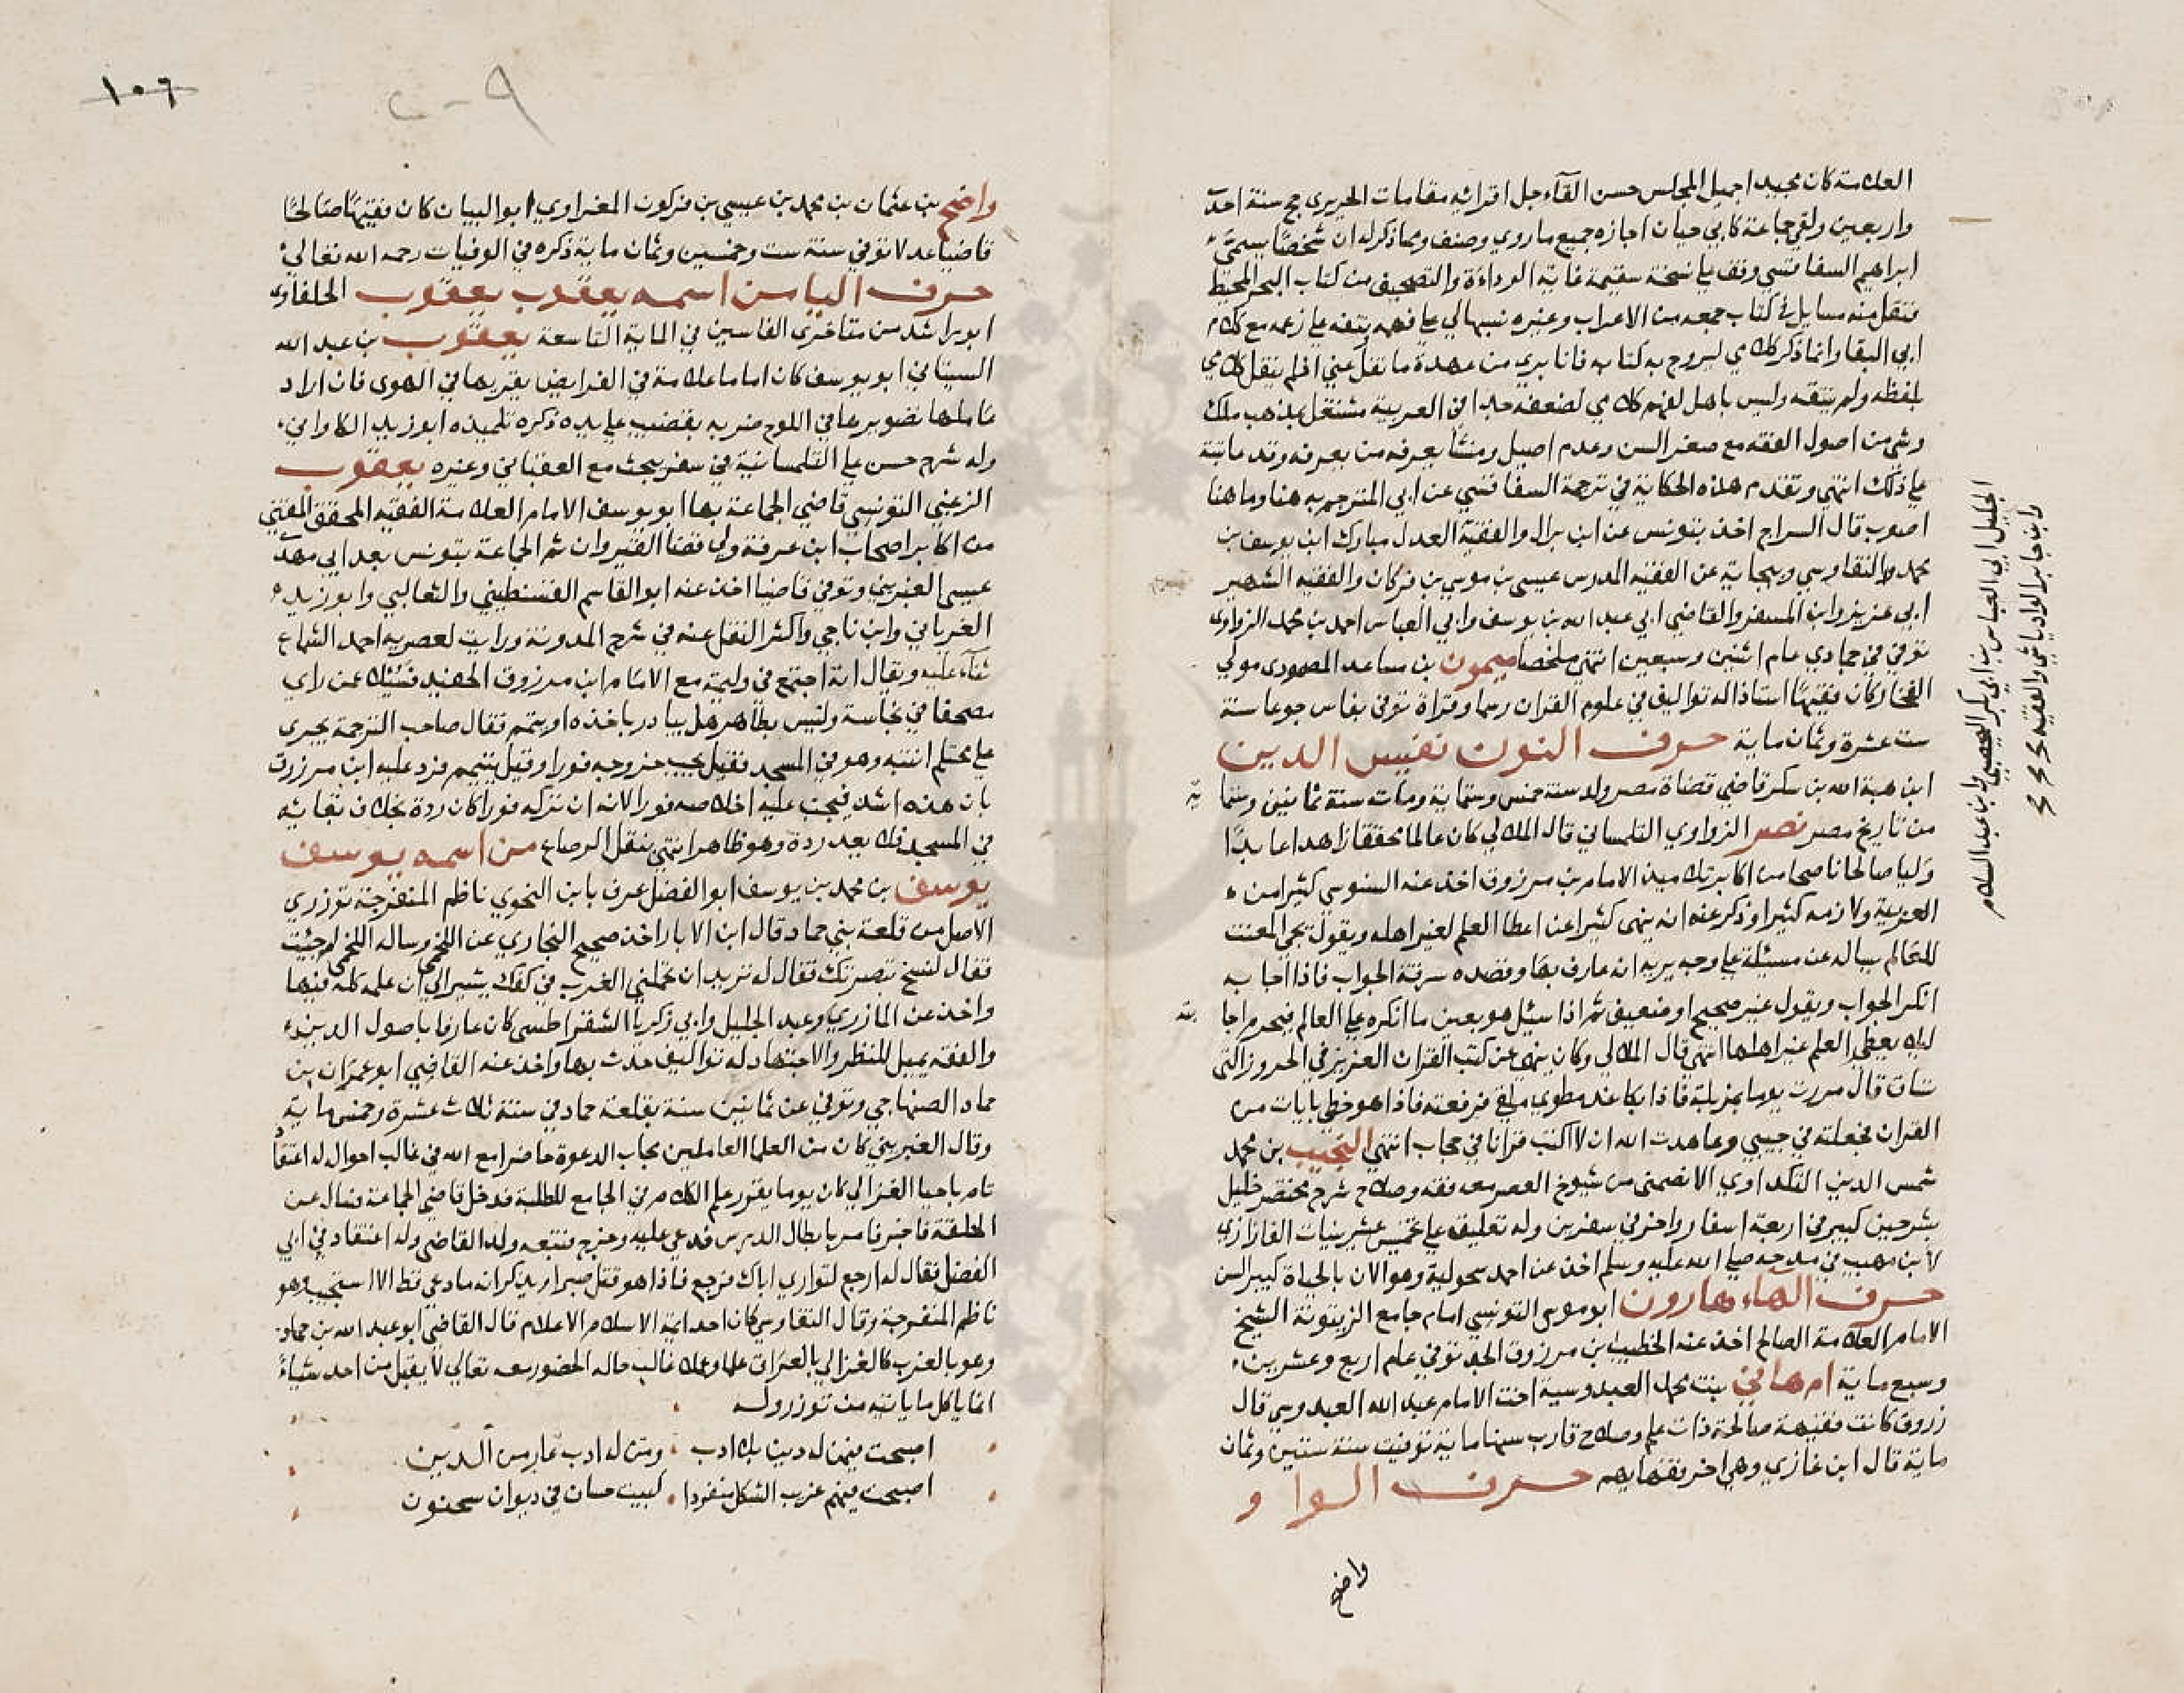 العلامة كان مجيدا جميل المجلس حسن القآء جل اقرائه مقامات الحريري حج سنة احد
واربعين ولقي جماعة كابي حيان اجازه جميع ما روي وصنف ومما ذكر له ان شخصا يسمى
ابراهيم السفاقسي وقف على نسخة سقيمة غاية الرداءة والتصحيف من كتاب البحر المحيط
فنقل منه مسايل في كتاب جمعه من الاعراب وغيره نسبها لي على فهمه يتقه على زعمه مع كلام
ابي البقا وانما ذكر كلامي ليروج به كتابه فانا بريء من عهدة ما نقل عني اذ لم ينقل كلامي
بلفظه ولم يتقه وليس باهل لفهم كلامي لضعفه جدا في العربية مشتغل بمذهب ملك
وشئ من اصول الفقه مع صغر السن وعدم اصيل ومنشا يعرفه من يعرفه وقد عاتبته
على ذلك انتهى وتقدم هذه الحكاية في ترجمة السفاقسي عن ابي المترجم به هنا وما هنا
اصوب قال السراج اخذ بتونس عن ابن برال والفقيه العدل مبارك ابن يوسف بن
محمد والنقاوسي وبجاية عن الفقيه المدرس عيسى بن موسى بن فركان والفقيه الشهير
ابي عزيز وابن المسفر والقاضي ابي عبد الله بن يوسف وابي العباس احمد بن محمد الزواوى
توفي في جمادي عام اثنين وسبعين انتهى ملخصا ميمون بن مساعد المصمودى مولي
الفخار كان فقيها استاذا له تواليف في علوم القران رسما وقراة توفي بفاس جوعا سنة
ست عشرة وثمان ماية حرف النون نفيس الدين
ابن هبة الله بن سكر قاضي قضاة مصر ولد سنة خمس وستماية ومات سنة ثمانين وستما ية
من تاريخ مصر نصر الزواوي التلمساني قال الملالي كان عالما محققا زاهدا عابدا
وليا صالحا ناصحا من اكابر تلاميذ الامام بن مرزوق اخذ عنه السنوسي كثيرا من
العربية ولازمه كثيرا وذكر عنه انه ينهى كثيرا عن اعطا العلم لغير اهله ويقول يجي المعنت
للعالم يساله عن مسئلة على وجه يريه انه عارف بها وقصده سرقة الجواب فاذا اجابه
انكر الجواب ويقول غير صحيح او ضعيف ثم اذا سئل هو بعين ما انكره على العالم فيحرم اجا بته
ليلا يعطي العلم غير اهلها انتهى قال الملالي وكان ينهى عن كتب القران العزيز في الحروز التي
تساق قال مررت يوما بمزبلة فاذا بكاغد مطوي ملقى فرفعته فاذا هو خطى بايات من
القران فجعلته في جيبي وعاهدت الله ان لا اكتب قرانا في حجاب انتهى النجيب بن محمد
شمس الدين التكداوي الانصمنى من شيوخ العصر معه فقه وصلاح شرح مختصر خليل
بشرحين كبير في اربعة اسفار واخر في سفرين وله تعليق على تخميس عشرينيات الفازازي
لابن مهيب في مدحه صلى الله عليه وسلم اخذ عن احمد سحولية وهو الان بالحياة كبير السن
حرف الهاء هارون ابو موسى التونسي امام جامع الزيتونة الشيخ
الامام العلامة الصالح اخذ عنه الخطيب بن مرزوق الجد توفي عام اربع وعشرين
وسبع ماية ام هاني بنت محمد العبدوسية اخت الامام عبد الله العبدوسي قال
زروق كانت فقيهة صالحة ذات علم وصلاح قارب سنها ماية توفيت سنة ستين وثمان
ماية قال ابن غازي وهي اخر فقهايهم حرف الواو
واضح
الجليل ابي العباس بن ابي بكر اليحصبي وابن عبد السلام
وابن جابر الوادياشي والفقيه
١٠٦
٢٠٩
واضح بن عثمان بن محمد بن عيسي بن فركون المغراوي ابو البيان كان فقيها صالحا
قاضيا عدلا توفي سنة ست وخمسين وثمان ماية ذكره في الوفيات رحمه الله تعالى
حرف الياء من اسمه يعقوب يعقوب الحلفاوى
ابو راشد من متاخرى الفاسين في الماية التاسعة يعقوب بن عبد الله
السيتاني ابو يوسف كان اماما علامة في الفرايض يقريها في الهوى فان اراد
عاملها تصويرها في اللوح ضربه بقضيب على يده ذكره تلميذه ابو زيد الكاواني
وله شرح حسن على التلمسانية في سفر بحث مع العقباني وغيره يعقوب
الزعبي التونسي قاضي الجماعة بها ابو يوسف الامام العلامة الفقيه المحقق المفتي
من اكابر اصحاب ابن عرفة ولي قضا القيروان ثم الجماعة بتونس بعد ابي مهد
عيسى الغبريني وتوفي قاضيا اخذ عنه ابو القاسم القسنطيني والثعالبي وابو زيد
الغرياني وابن ناجي واكثر النقل عنه في شرح المدونة ورايت لعصريه احمد الشماع
ثناء عليه ويقال انه اجتمع في وليمة مع الامام ابن مرزوق الحفيد فسئل عن راي
مصحفا في نجاسة وليس بطاهر هل يبادر باخذه او يتمم فقال صاحب الترجمة يجرى
على محتلم انتبه وهو في المسجد فقيل يجب خروجه فورا وقيل يتيمم فرد عليه ابن مرزوق
بان هذه اشد فيجب عليه اخلاصه فورا لانه ان تركه فورا كان ردة بخلاف بقائه
في المسجد فلا يعد ردة وهو ظاهر انتهى بنقل الرصاع من اسمه يوسف
يوسف بن محمد بن يوسف ابو الفضل عرف بابن النحوي ناظم المنفرجة توزري
الاصل من قلعة بني حماد قال ابن الابار اخذ صحيح البخاري عن اللخمي وساله اللخمي لم جئت
فقال لنسخ تبصرتك فقال له تريد ان تحملني الغرب في كفك يشير الي ان علمه كله فيها
واخذ عن المازري وعبد الجليل وابي زكريا الشقراطسي كان عارفا باصول الدين
والفقه يميل للنظر والاجتهاد له تواليف حدث بها واخذ عنه القاضي ابو عمران بن
حماد الصنهاجي وتوفي عن ثمانين سنة بقلعة حماد في سنة ثلاث عشرة وخمس ماية
وقال الغبريني كان من العلما العاملين مجاب الدعوة حاضرا مع الله في غالب احواله له اعتقاد
تام باحيا الغزالي كان يوما يقرر علم الكلام في الجامع للطلبة فدخل قاضي الجماعة فسال عن
الحلقة فاخبر فامر بابطال الدرس فدعي عليه وخرج فتبعه ولد القاضى وله اعتقاد في ابي
الفضل فقال له ارجع لتواري اباك فرجع فاذا هو قتل صبرا ويذكر انه ما دعي قط الا استجيب وهو
ناظم المنفرجة وقال النقاوسي كان احد ايمة الاسلام الاعلام قال القاضي ابو عبد الله بن حماد
وهو بالغرب كالغزالي بالعراق علما وعملا غالب حاله الحضور معه تعالي لا يقبل من احد شياء
انما ياكل ما ياتيه من توزر وله
اصبحت فيمن له دين بلا ادب ومن له ادب عار من الدين
اصبحت فيهم غريب الشكل منفردا كبيت حسان في ديوان سحنون